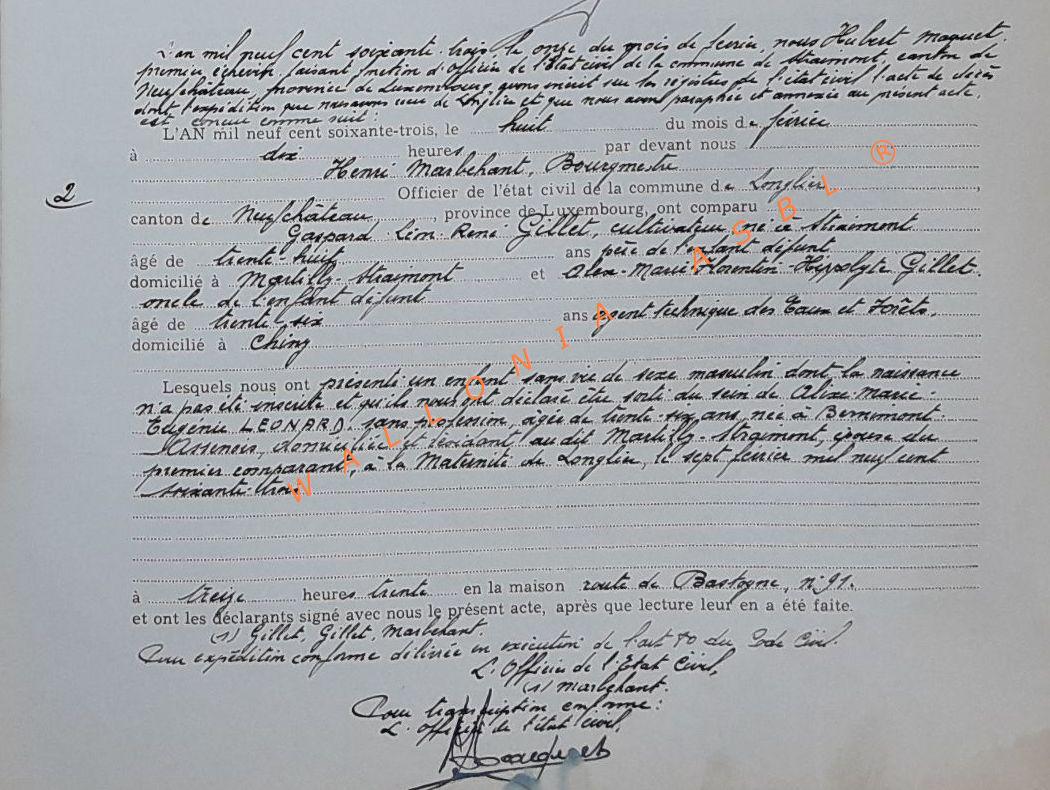 L'an mil neuf cent soixante-trois, le onze du mois de février, nous Hubert Maquet,
premier échevin, faisant fonction d'Officier de l'Etat civil de la commune de Straimont, canton de
Neufchâteau, province de Luxembourg, avons inscrit sur les registres de l'état civil l'acte de décès
dont l'expédition que nous avons reçue de Longlier et que nous avons paraphée et annexée au présent acte,
est conçue comme suit :
L'AN mil neuf cent soixante-trois, le huit du mois de février
à dix heures par devant nous
Henri Marbehant, Bourgmestre
2
Officier de l'état civil de la commune de Longlier,
canton de Neufchâteau, province de Luxembourg, ont comparu
Gaspard Léon René Gillet, cultivateur, né à Straimont
âgé de trente huit ans père de l'enfant défunt
domicilié à Martilly-Straimont et Alex-Marie-Florentin-Hippolyte Gillet
oncle de l'enfant défunt
âgé de trente six ans agent technique des Eaux et Forêts,
domicilié à Chiny
Lesquels nous ont présenté un enfant sans vie de sexe masculin dont la naissance
n'a pas été inscrite et qu'ils nous ont déclaré être sorti du sein de Alixe-Marie-
Eugénie LEONARD, sans profession, âgée de trente-six ans, née à Bernimont
Assenois, domiciliée et résidant audit Martilly-Straimont, épouse du
premier comparant, à la Maternité de Longlier, le sept février mil neuf cent
soixante-trois
à treize heures trente en la maison route de Bastogne, n° 91.
et ont les déclarants signé avec nous le présent acte, après que lecture leur en a été faite.
(s) Gillet, Gillet, Marbehant.
Pour expédition conforme délivrée en exécution de l'art 80 du Code Civil.
L'Officier de l'Etat Civil,
(s) Marbehant.
Pour transcription conforme :
L'Officier de l'état civil,
HMaquet
WALLONIA ASBL ®